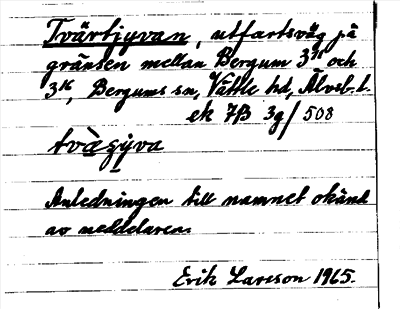 Tvärtjyvan, utfartsväg på
gränsen mellan Bergum 3¹⁵ och
3¹⁶, Bergums sn, Vättle hd, Älvsb. l.
ek 7B 3g/508
Anledningen till namnet okänd
av meddelaren.
Erik Larsson 1965.